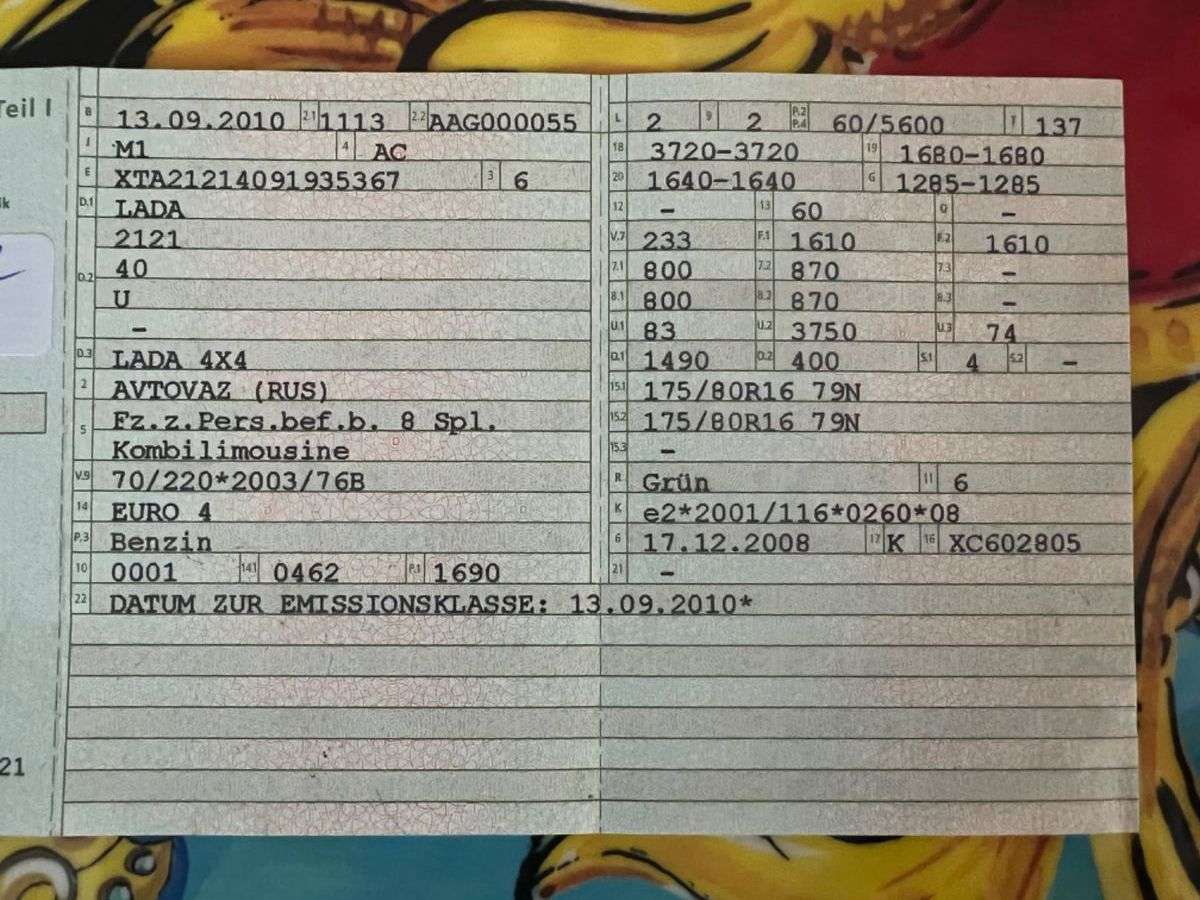 Teil I
B 13.09.2010 2.1 1113 2.2 AAG000055
J M1 4 AC
E XTA21214091935367 3 6
D.1 LADA
2121
D.2 40
U
–
D.3 LADA 4X4
2 AVTOVAZ (RUS)
5 Fz.z.Pers.bef.b. 8 Spl.
Kombilimousine
V.9 70/220*2003/76B
14 EURO 4
P.3 Benzin
10 0001 14.1 0462 P.1 1690
22 DATUM ZUR EMISSIONSKLASSE: 13.09.2010*
L 2 9 2 P.2 P.4 60/5600 T 137
18 3720–3720 19 1680–1680
20 1640–1640 G 1285–1285
12 – 13 60 Q –
V.7 233 F.1 1610 F.2 1610
7.1 800 7.2 870 7.3 –
8.1 800 8.2 870 8.3 –
U.1 83 U.2 3750 U.3 74
O.1 1490 O.2 400 S.1 4 S.2 –
15.1 175/80R16 79N
15.2 175/80R16 79N
15.3 –
R Grün 11 6
K e2*2001/116*0260*08
6 17.12.2008 17 K 16 XC602805
21 –
21